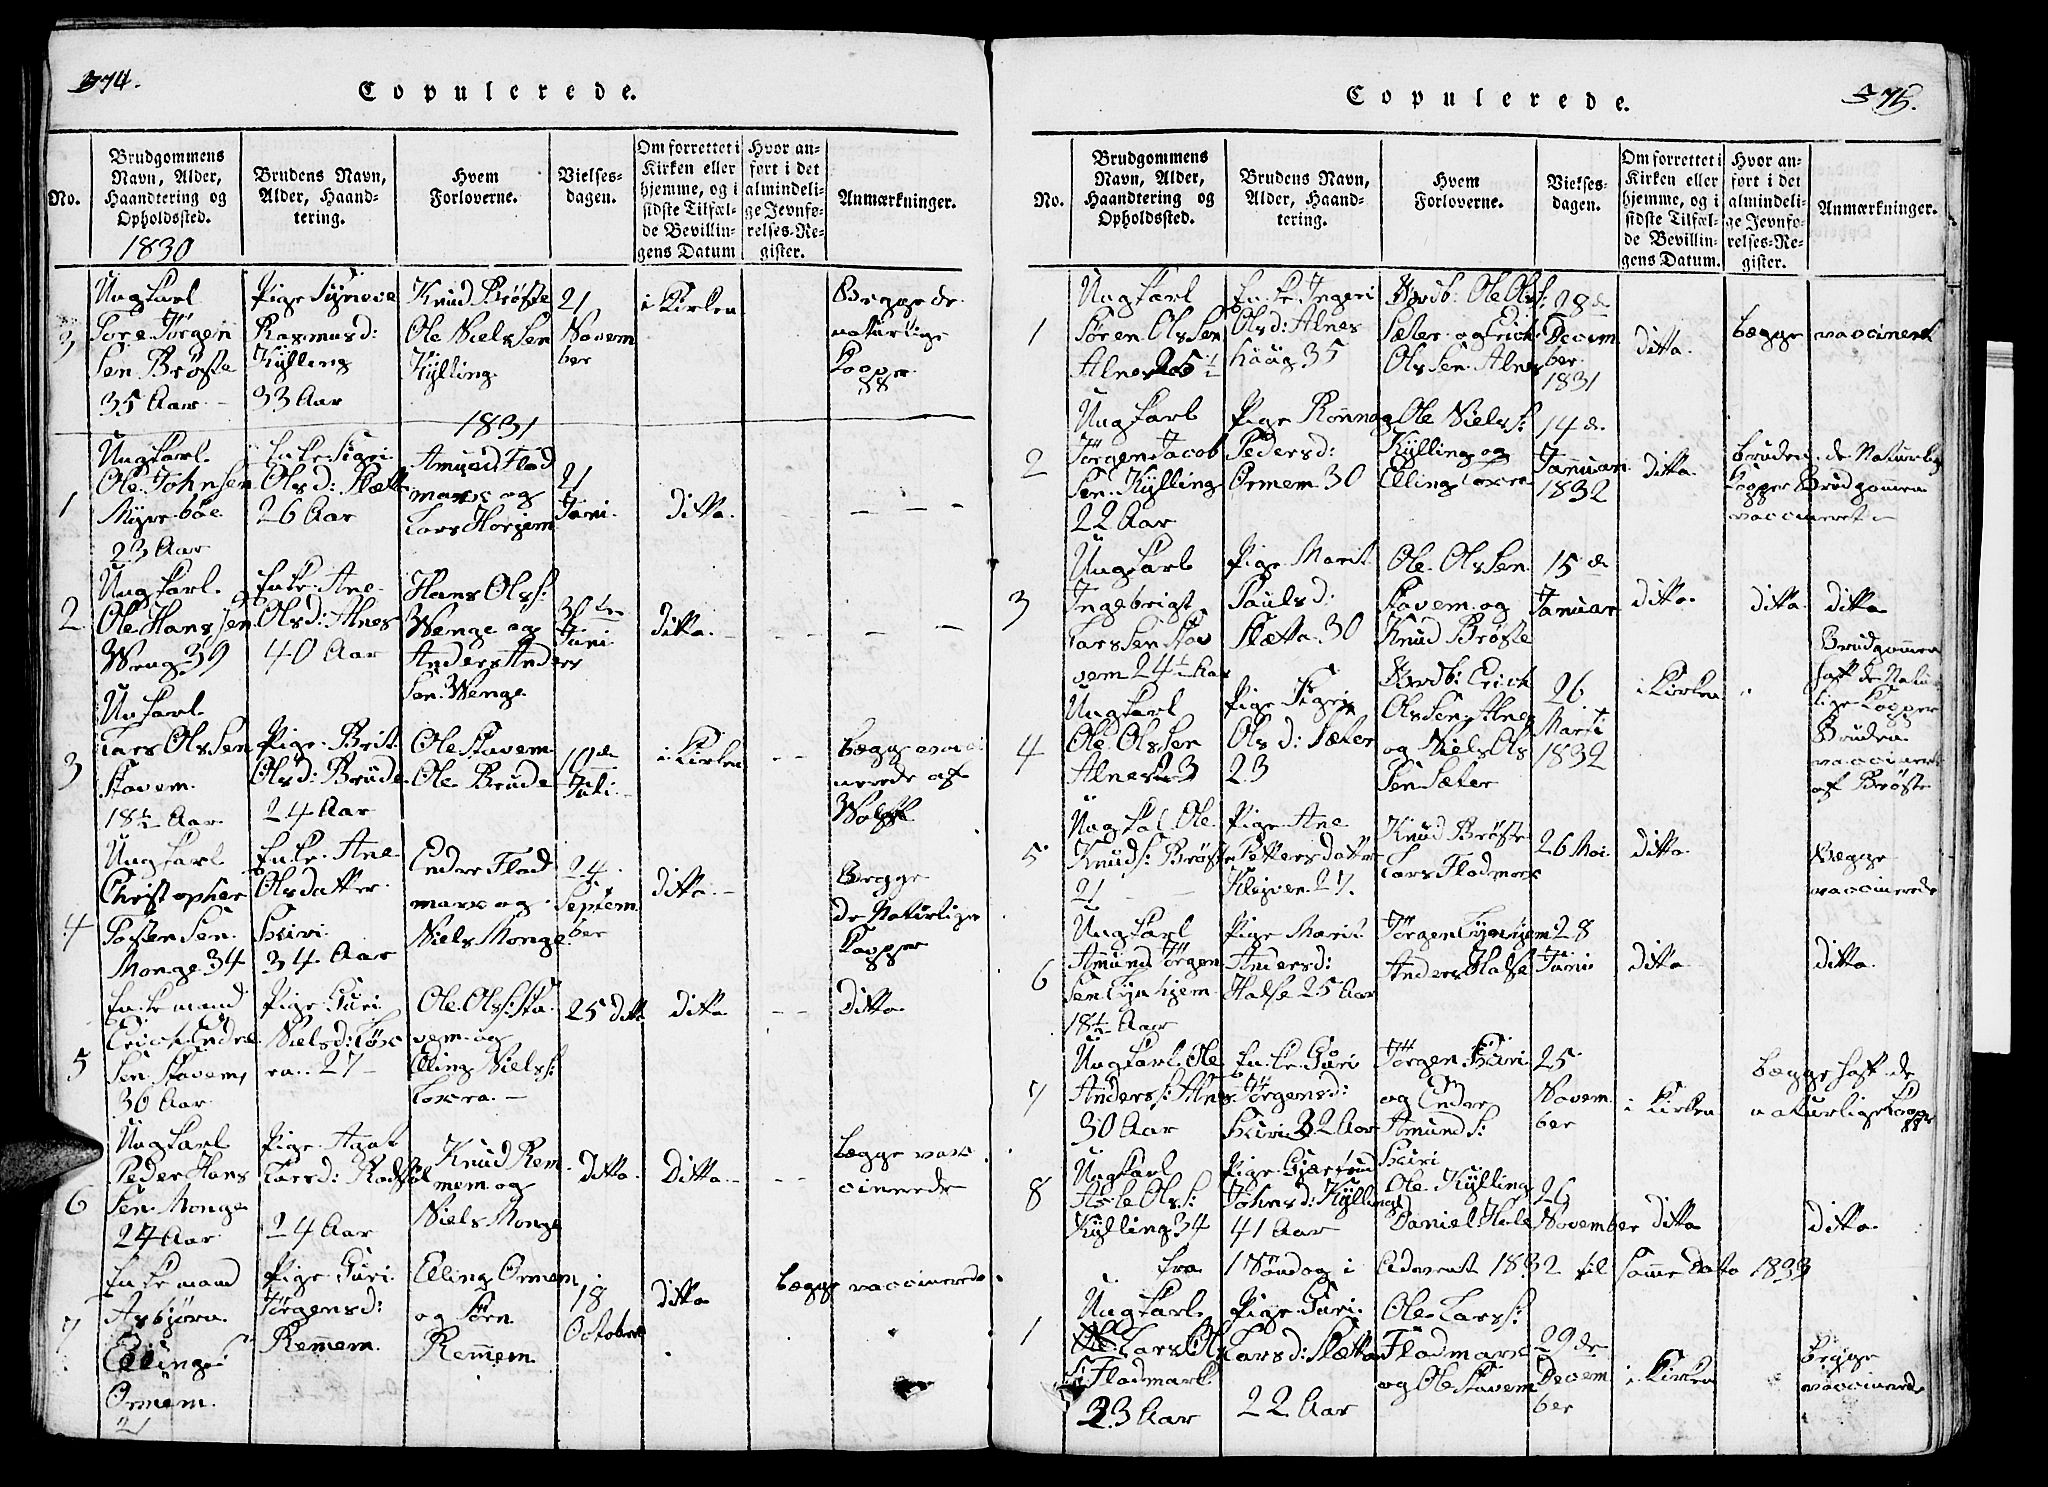 374.
Copulerede.
No.
Brudgommens
Navn, Alder,
Haandtering og
Opholdssted.
Brudens Navn,
Alder, Haand-
tering.
Hvem
Forloverne.
Vielses-
dagen.
Om forrettet i
Kirken eller
hjemme, og i
sidste Tilfæl-
de Bevillin-
gens Datum
Hvor an-
ført i det
almindeli-
ge Jevnfø-
relses-Re-
gister.
Anmærkninger.
1830
3
Ungkarl
Tore Jörgen
Sen Bröste
35 Aar
Pige Synove
Rasmusd:
Kylling
33 Aar
Knud Bröste
Ole Niels Sen
Kylling
21
Novem
ber
i Kirken
Begge de
naturlige
Kopper
1831
1
Ungkarl
Ole Johnsen
Myreböe
23 Aar
Enke Sigri
Olsd: Slette
26 Aar
Amund Flad
marx og
Lars Horjem
21
Juni
ditto
2
Ungkarl
Ole Hanssen
Weng 39
Enke Ane
Olsd: Alnes
40 Aar
Hans Olss:
Wenge og
Anders Anders
Sen Wenge
30te
Juni
ditto
3
Unkarl
Lars Olssen
Stavem
18½ Aar
Pige Brit
Olsd: Brude
24 Aar
Ole Stavem
Ole Brude
10de
Juli
i Kirken
begge vacci
nerede af
4
Ungkarl
Christopher
Tosten Sen
Monge 34
Enke Ane
Olsdatter
Hivri
34 Aar
Endre Flad
marx og
Niels Monge
24
Septem
ber
ditto
Begge
de Naturlige
Kopper
5
Enkemand
Erich Endre
Sen Stavem
30 Aar
Pige Guri
Nielsd: Löx
ra 27
Ole Olss: Sta
vem og
Elling Nielss:
Loxra
25 ditto
ditto
ditto
6
Ungkarl
Peder Hans
Sen Monge
24 Aar
Pige Agat
Larsd: Rödstöl
24 Aar
Knud Rem
mem og
Niels Monge
ditto
ditto
begge vac
cinerede
7
Enkemand
Asbjörn
Ellings:
Ormem
21
Pige Guri
Jörgensd:
Remem
Elling Ormem
og Sörn
Remmem
18
October
ditto
begge vaccinerede
375.
Copulerede.
No.
Brudgommens
Navn, Alder,
Haandtering og
Opholdssted.
Brudens Navn,
Alder, Haand-
tering.
Hvem
Forloverne.
Vielses-
dagen.
Om forrettet i
Kirken eller
hjemme, og i
sidste Tilfæl-
de Bevillin-
gens Datum.
Hvor an-
ført i det
almindeli-
ge Jevnfø-
relses-Re-
gister.
Anmærkninger.
1
Ungkarl
Sören Olssen
Alnes 25½
Enke Ingeri
Olsd: Alnes
haug 35
Ole Olss:
Sæter og Erich
Olssen Alnes
28de
Decem
ber
1831
ditto
begge vaccineret
2
Ungkarl
Jörgen Jacob
Sen Kylling
22 Aar
Pige Rönnog
Pedersd:
Ormem 30
Ole Nielss:
Kylling og
Elling Loxra
14de
Januar
1832
ditto
bruden de Naturlige
Kopper Brudgomen
vaccineret
3
Ungkarl
Ingebrigt
Larssen Sta
vem 24½ Aar
Pige Marit
Paulsd:
Sletta 30
Ole Olssen
Stavem og
Knud Bröste
15de
Januar
ditto
ditto ditto
4
Ungkarl
Ole Olssen
Alnes 23
Pige Sigri
Olsd: Sæter
23
Erich
Olssen Alnes
og Niels Ols
Sen Sæter
26
Marti
1832
i Kirken
Brudgomen
haft de Natur
lige Kopper
Bruden
vaccineret
af Bröste
5
Ungkal Ole
Knuds: Bröste
21
Pige Ane
Pettersdatter
Kleiven 27
Knud Bröste
Lars Fladmarx
26 Mai
ditto
Begge
vaccinerede
6
Ungkarl
Amund Jörgen
Sen Lynhjem
18½ Aar
Pige Marit
Andersd:
Halse 25 Aar
Jörgen Lynhjem
Anders Halse
28
Juni
ditto
ditto
7
Ungkarl Ole
Anderss: Alnes
30 Aar
Enke Guri
Jörgensd:
Hivri 32 Aar
Jörgen Hivri
og Endre
Amunds:
Hivri
25
Novem
ber
i Kirken
begge haft de
naturlige Kopper
8
Ungkarl
Asle Olss:
Kylling 34
Pige Gjertrud
Johnsd: Kylling
41 Aar
Ole Kylling
Daniel Hole
26
November
ditto
ditto
fra 1 Söndag i Advent 1832 til samme Dato 1833
1
Ungkarl
Lars Ol
s: Fladmark
23 Aar
Pige Guri
Larsd: Sletta
22 Aar
Ole Larss:
Fladmarx
og Ole Stavem
29de
Decem
ber
i Kirken
begge
vaccinerede